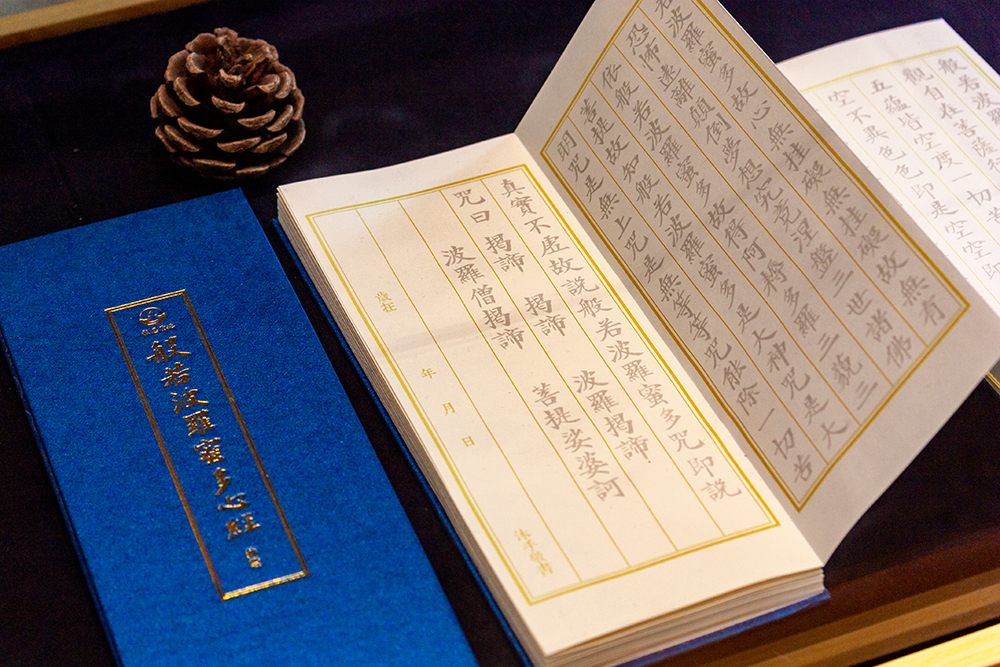 般若波羅蜜多心經
般若波羅
觀自在菩薩
五蘊皆空度一切苦
空不異色色即是空空即
若波羅蜜多故心無挂礙無挂礙故無有
恐怖遠離顛倒夢想究竟涅盤三世諸佛
依般若波羅蜜多故得阿耨多羅三藐三
菩提故知般若波羅蜜多是大神咒是大
明咒是無上咒是無等等咒能除一切苦
真實不虛故説般若波羅蜜多咒即説
咒曰 揭諦 揭諦 波羅揭諦
波羅僧揭諦 菩提娑婆訶
歲在 年 月 日 沐手敬書